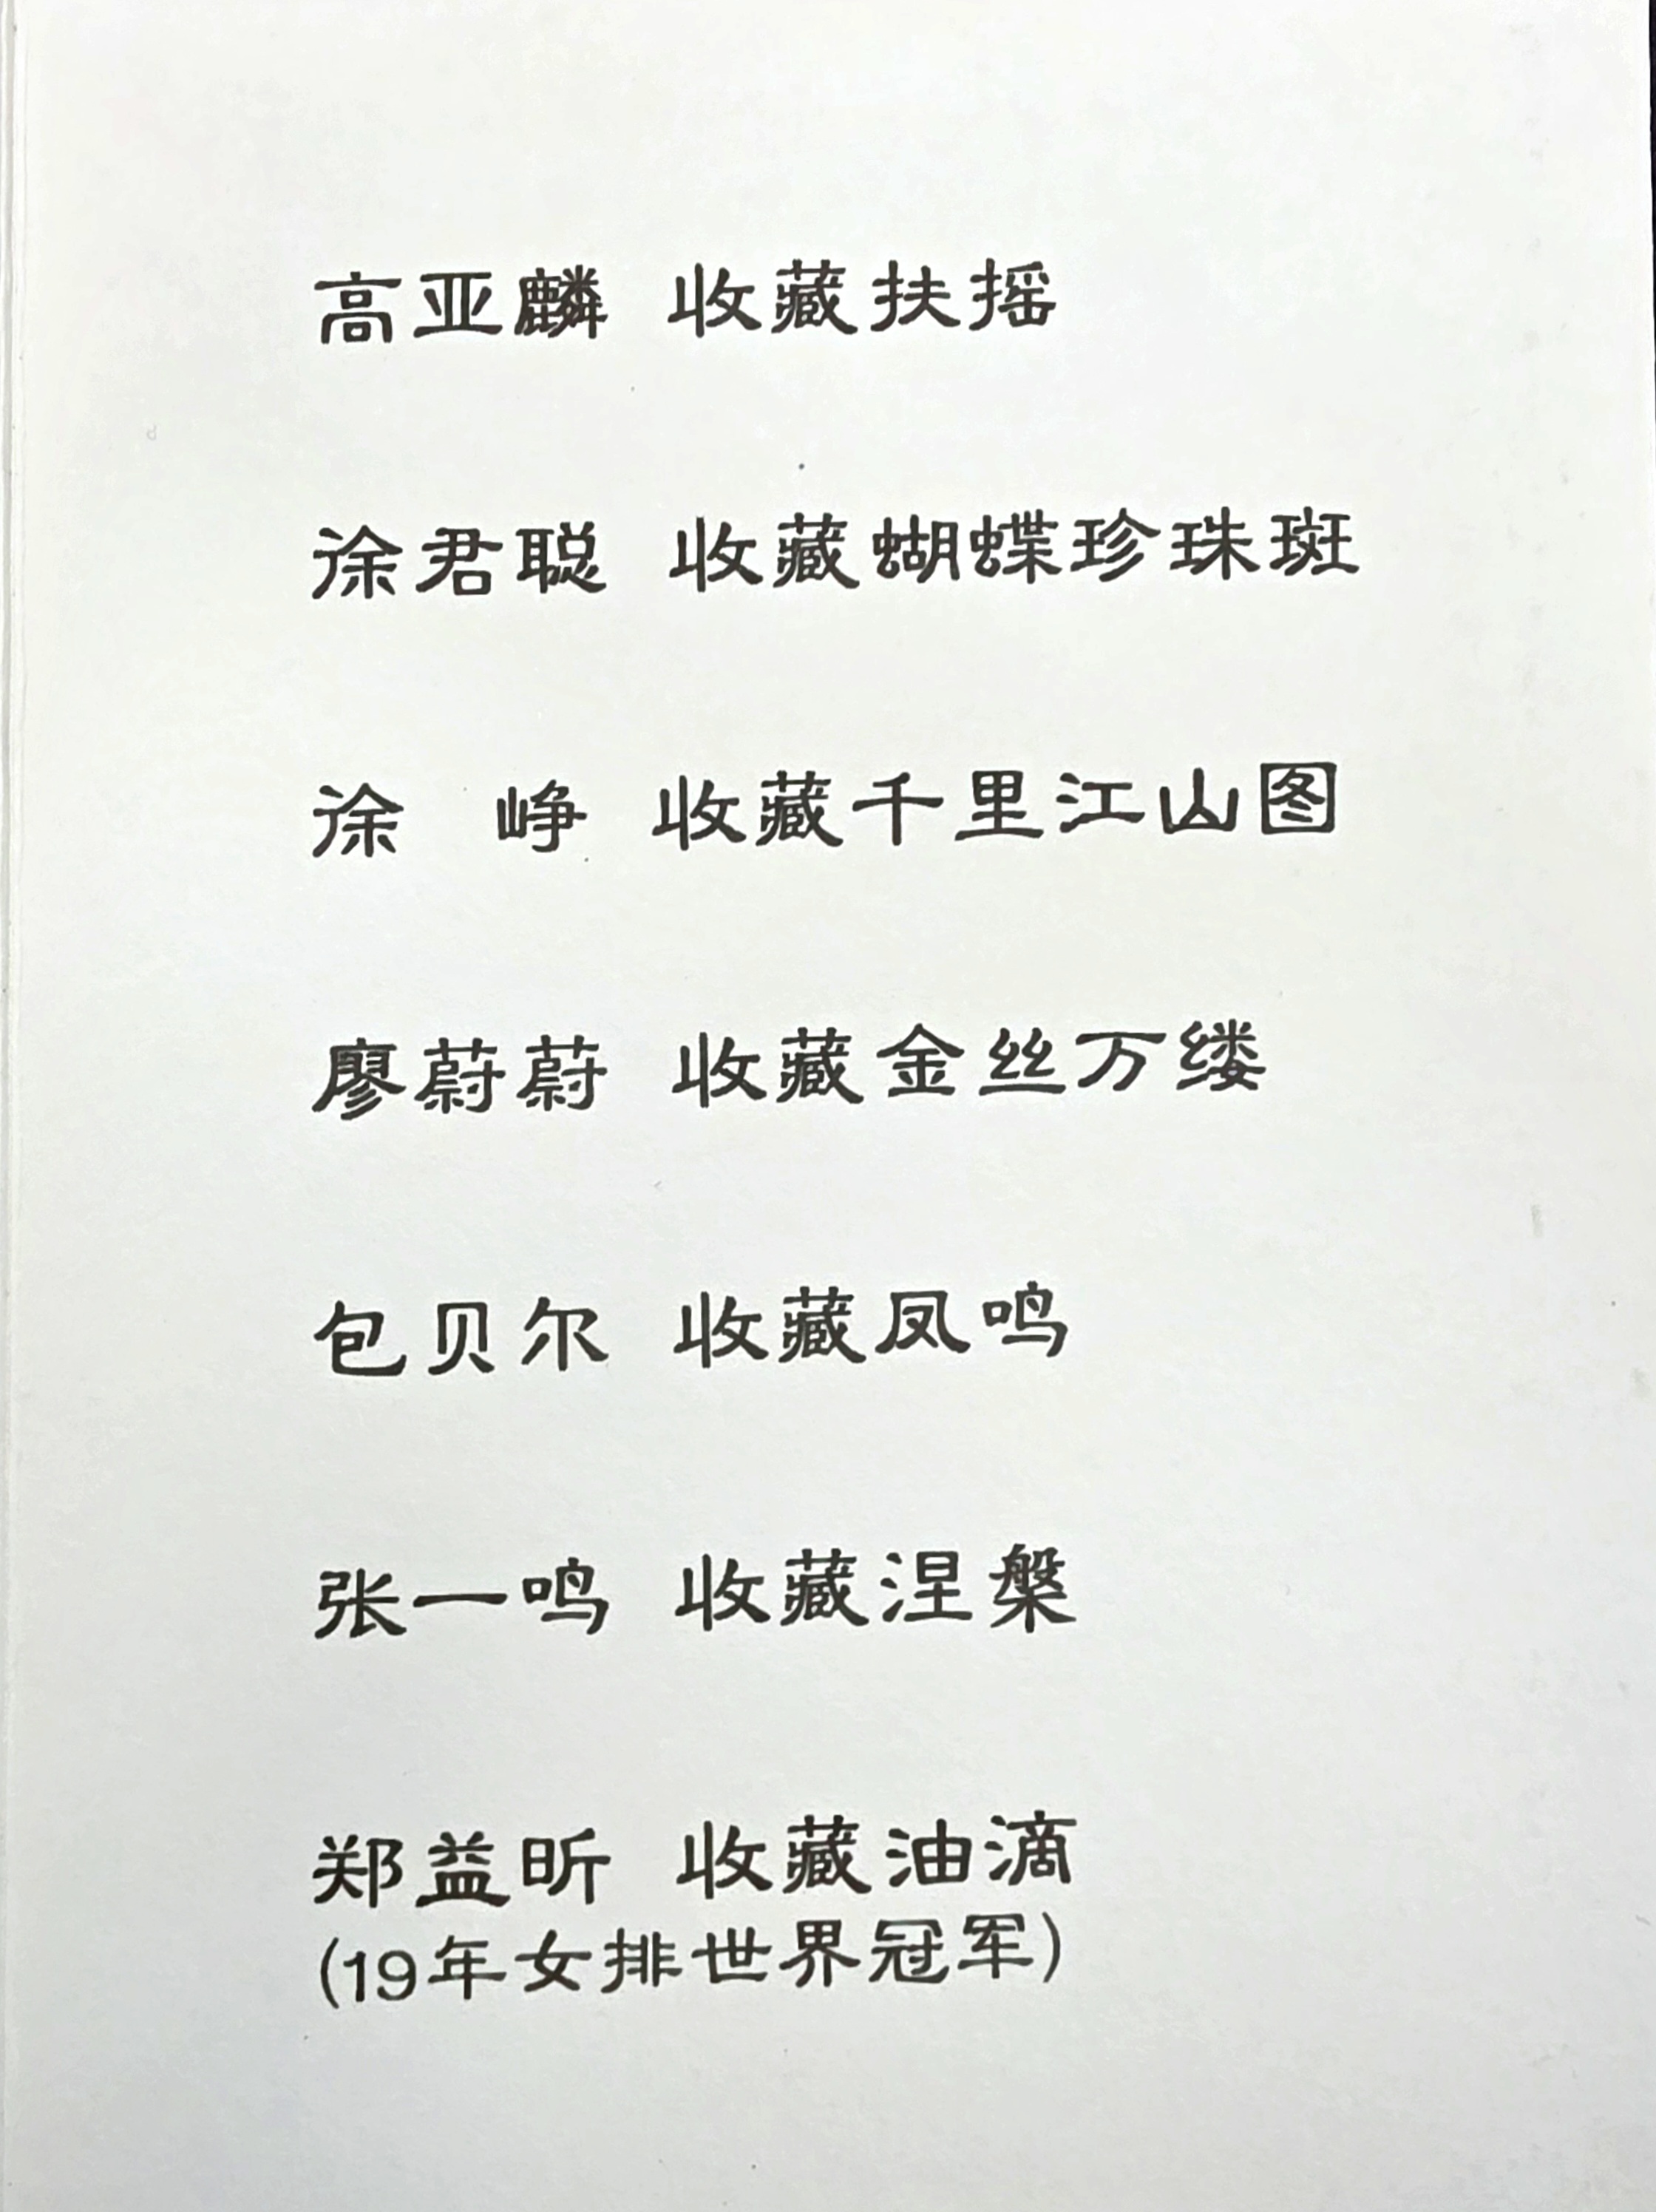 高亚麟 收藏扶摇
徐君聪 收藏蝴蝶珍珠斑
徐 峥 收藏千里江山图
廖蔚蔚 收藏金丝万缕
包贝尔 收藏凤鸣
张一鸣 收藏涅槃
郑益昕 收藏油滴
(19年女排世界冠军)